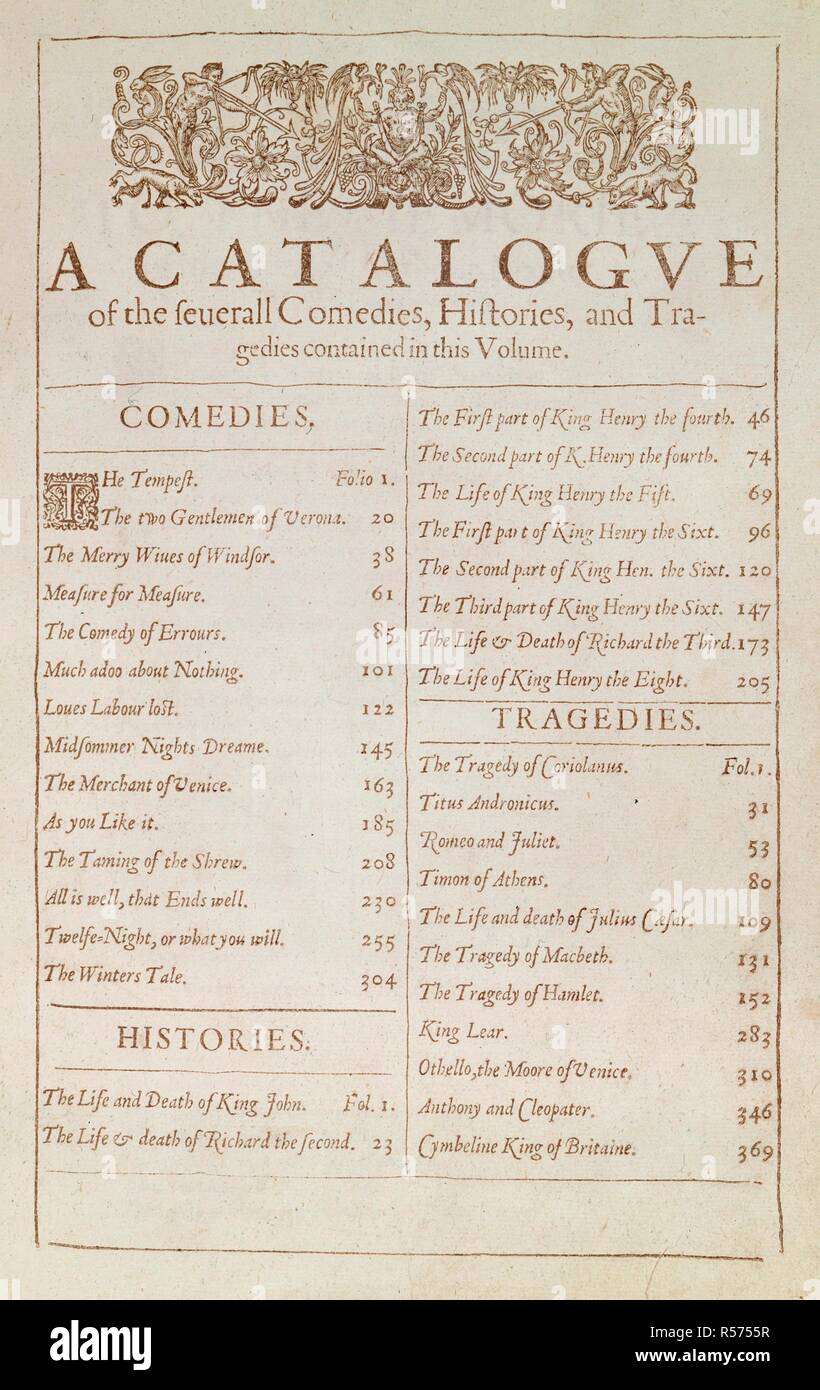 A CATALOGVE
of the ſeuerall Comedies, Hiſtories, and Tra-
gedies contained in this Volume.
COMEDIES.
THe Tempeſt. Folio 1.
The two Gentlemen of Verona. 20
The Merry Wiues of Windſor. 38
Meaſure for Meaſure. 61
The Comedy of Errours. 85
Much adoo about Nothing. 101
Loues Labour loſt. 122
Midſommer Nights Dreame. 145
The Merchant of Venice. 163
As you Like it. 185
The Taming of the Shrew. 208
All is well, that Ends well. 230
Twelfe-Night, or what you will. 255
The Winters Tale. 304
HISTORIES.
The Life and Death of King John. Fol. 1.
The Life & death of Richard the ſecond. 23
The Firſt part of King Henry the fourth. 46
The Second part of K. Henry the fourth. 74
The Life of King Henry the Fift. 69
The Firſt part of King Henry the Sixt. 96
The Second part of King Hen. the Sixt. 120
The Third part of King Henry the Sixt. 147
The Life & Death of Richard the Third. 173
The Life of King Henry the Eight. 205
TRAGEDIES.
The Tragedy of Coriolanus. Fol. 1.
Titus Andronicus. 31
Romeo and Juliet. 53
Timon of Athens. 80
The Life and death of Julius Cæſar. 109
The Tragedy of Macbeth. 131
The Tragedy of Hamlet. 152
King Lear. 283
Othello, the Moore of Venice. 310
Anthony and Cleopater. 346
Cymbeline King of Britaine. 369
alamy
alamy stock photo
alamy
Image ID: R5755R
www.alamy.com